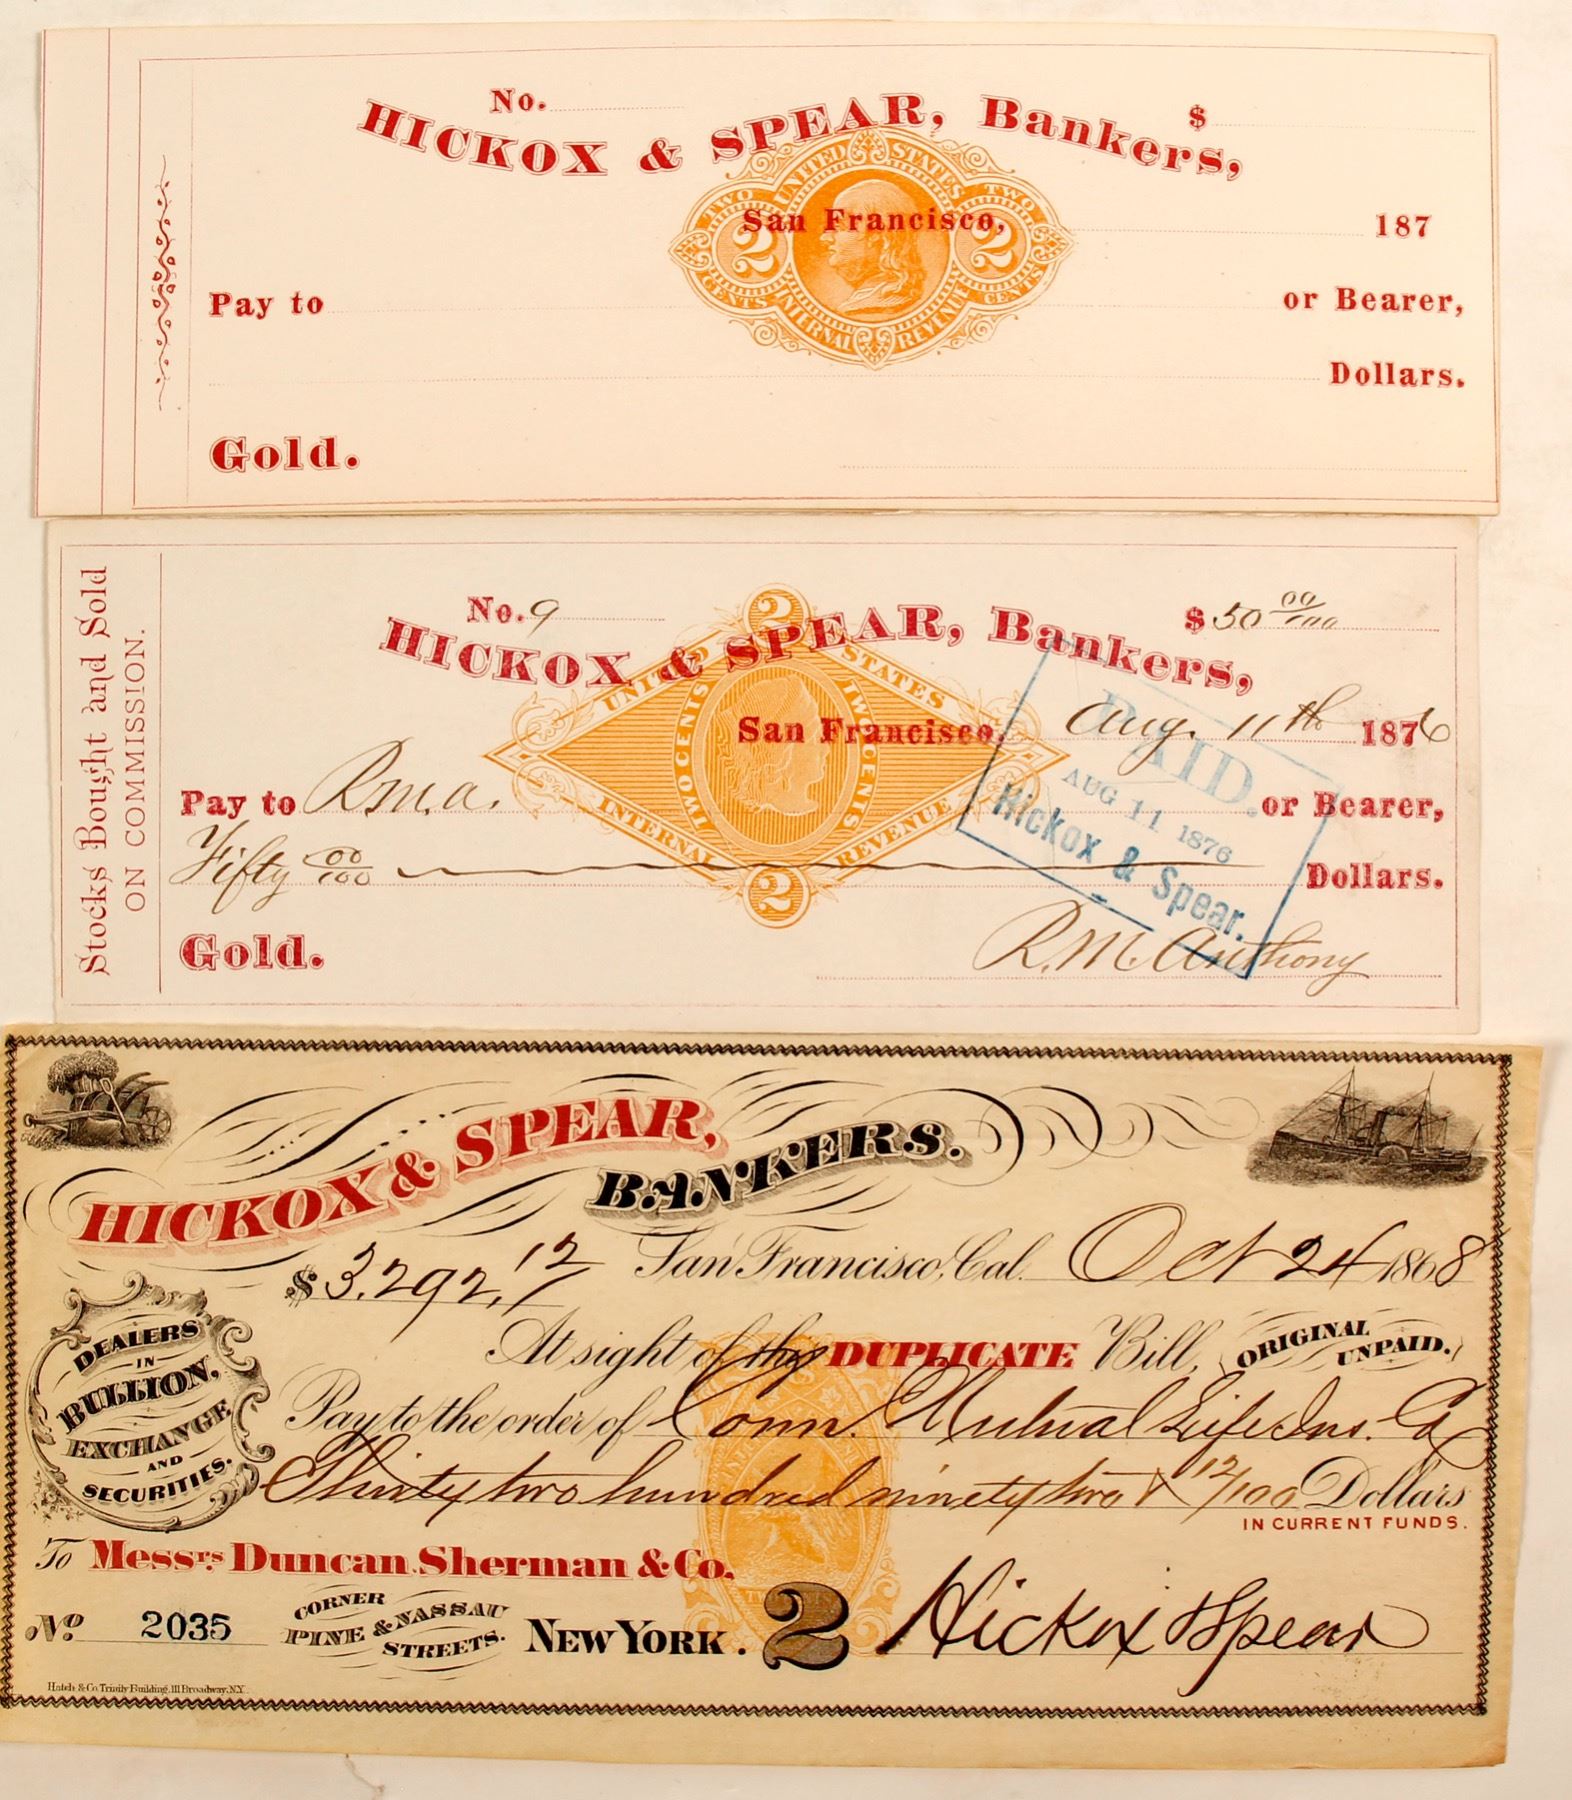 No.
HICKOX & SPEAR, Bankers,
$
UNITED STATES
TWO CENTS
2
TWO CENTS
2
INTERNAL REVENUE
San Francisco, 187
Pay to or Bearer,
Dollars.
Gold.
Stocks Bought and Sold
ON COMMISSION.
No. 9
HICKOX & SPEAR, Bankers,
$ 50 00/100
2
UNITED STATES
TWO CENTS
TWO CENTS
INTERNAL REVENUE
2
San Francisco, Aug. 11th 1876
Pay to R.M.A. or Bearer,
Fifty 00/100 Dollars.
Gold.
R.M. Anthony
PAID.
AUG 11 1876
Hickox & Spear.
HICKOX & SPEAR,
BANKERS.
$3,292,12 San Francisco, Cal. Oct 24 1868
DEALERS
IN
BULLION,
EXCHANGE
AND
SECURITIES.
At sight of this DUPLICATE Bill, ORIGINAL UNPAID.
Pay to the order of Conn. Mutual Life Ins. Co
Thirty two hundred ninety two & 12/100 Dollars
IN CURRENT FUNDS.
To Messrs. Duncan Sherman & Co.
No. 2035 CORNER PINE & NASSAU STREETS. NEW YORK. 2 Hickox & Spear
Hatch & Co. Trinity Building, 111 Broadway, N.Y.